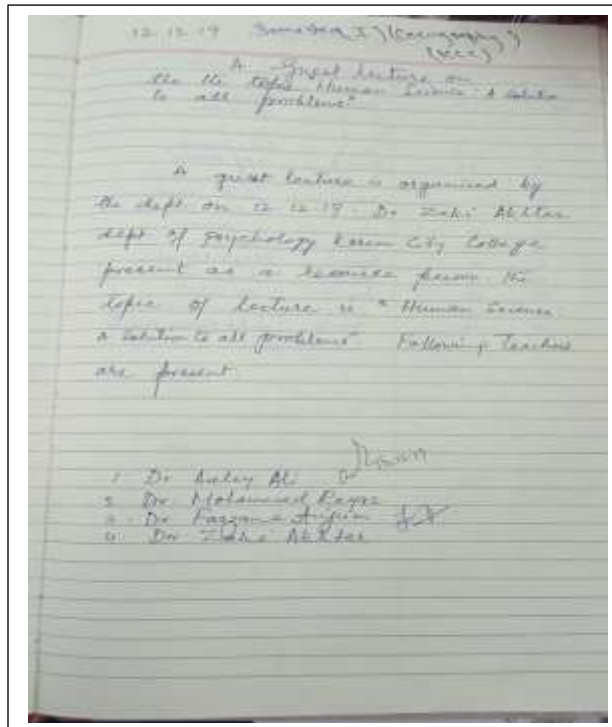 12.12.19 Semester I (Geography)
(KCC)
A Guest lecture on
the the topic Human Science: A Solution
to all problems"
A guest lecture is organised by
the dept on 12.12.19. Dr Zaki Akhtar
dept of Psychology Karim City College
present as a resource person. the
topic of lecture is "Human Science
A Solution to all problems" Following Teachers
are present.
1 Dr Ali
2 Dr Mohammad
3 Dr Anjum
4 Dr Zaki Akhtar